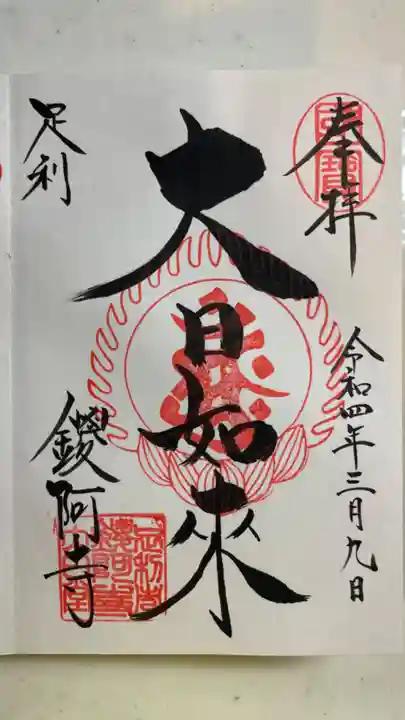 奉拝
令和四年三月九日
大日如来
足利
鑁阿寺